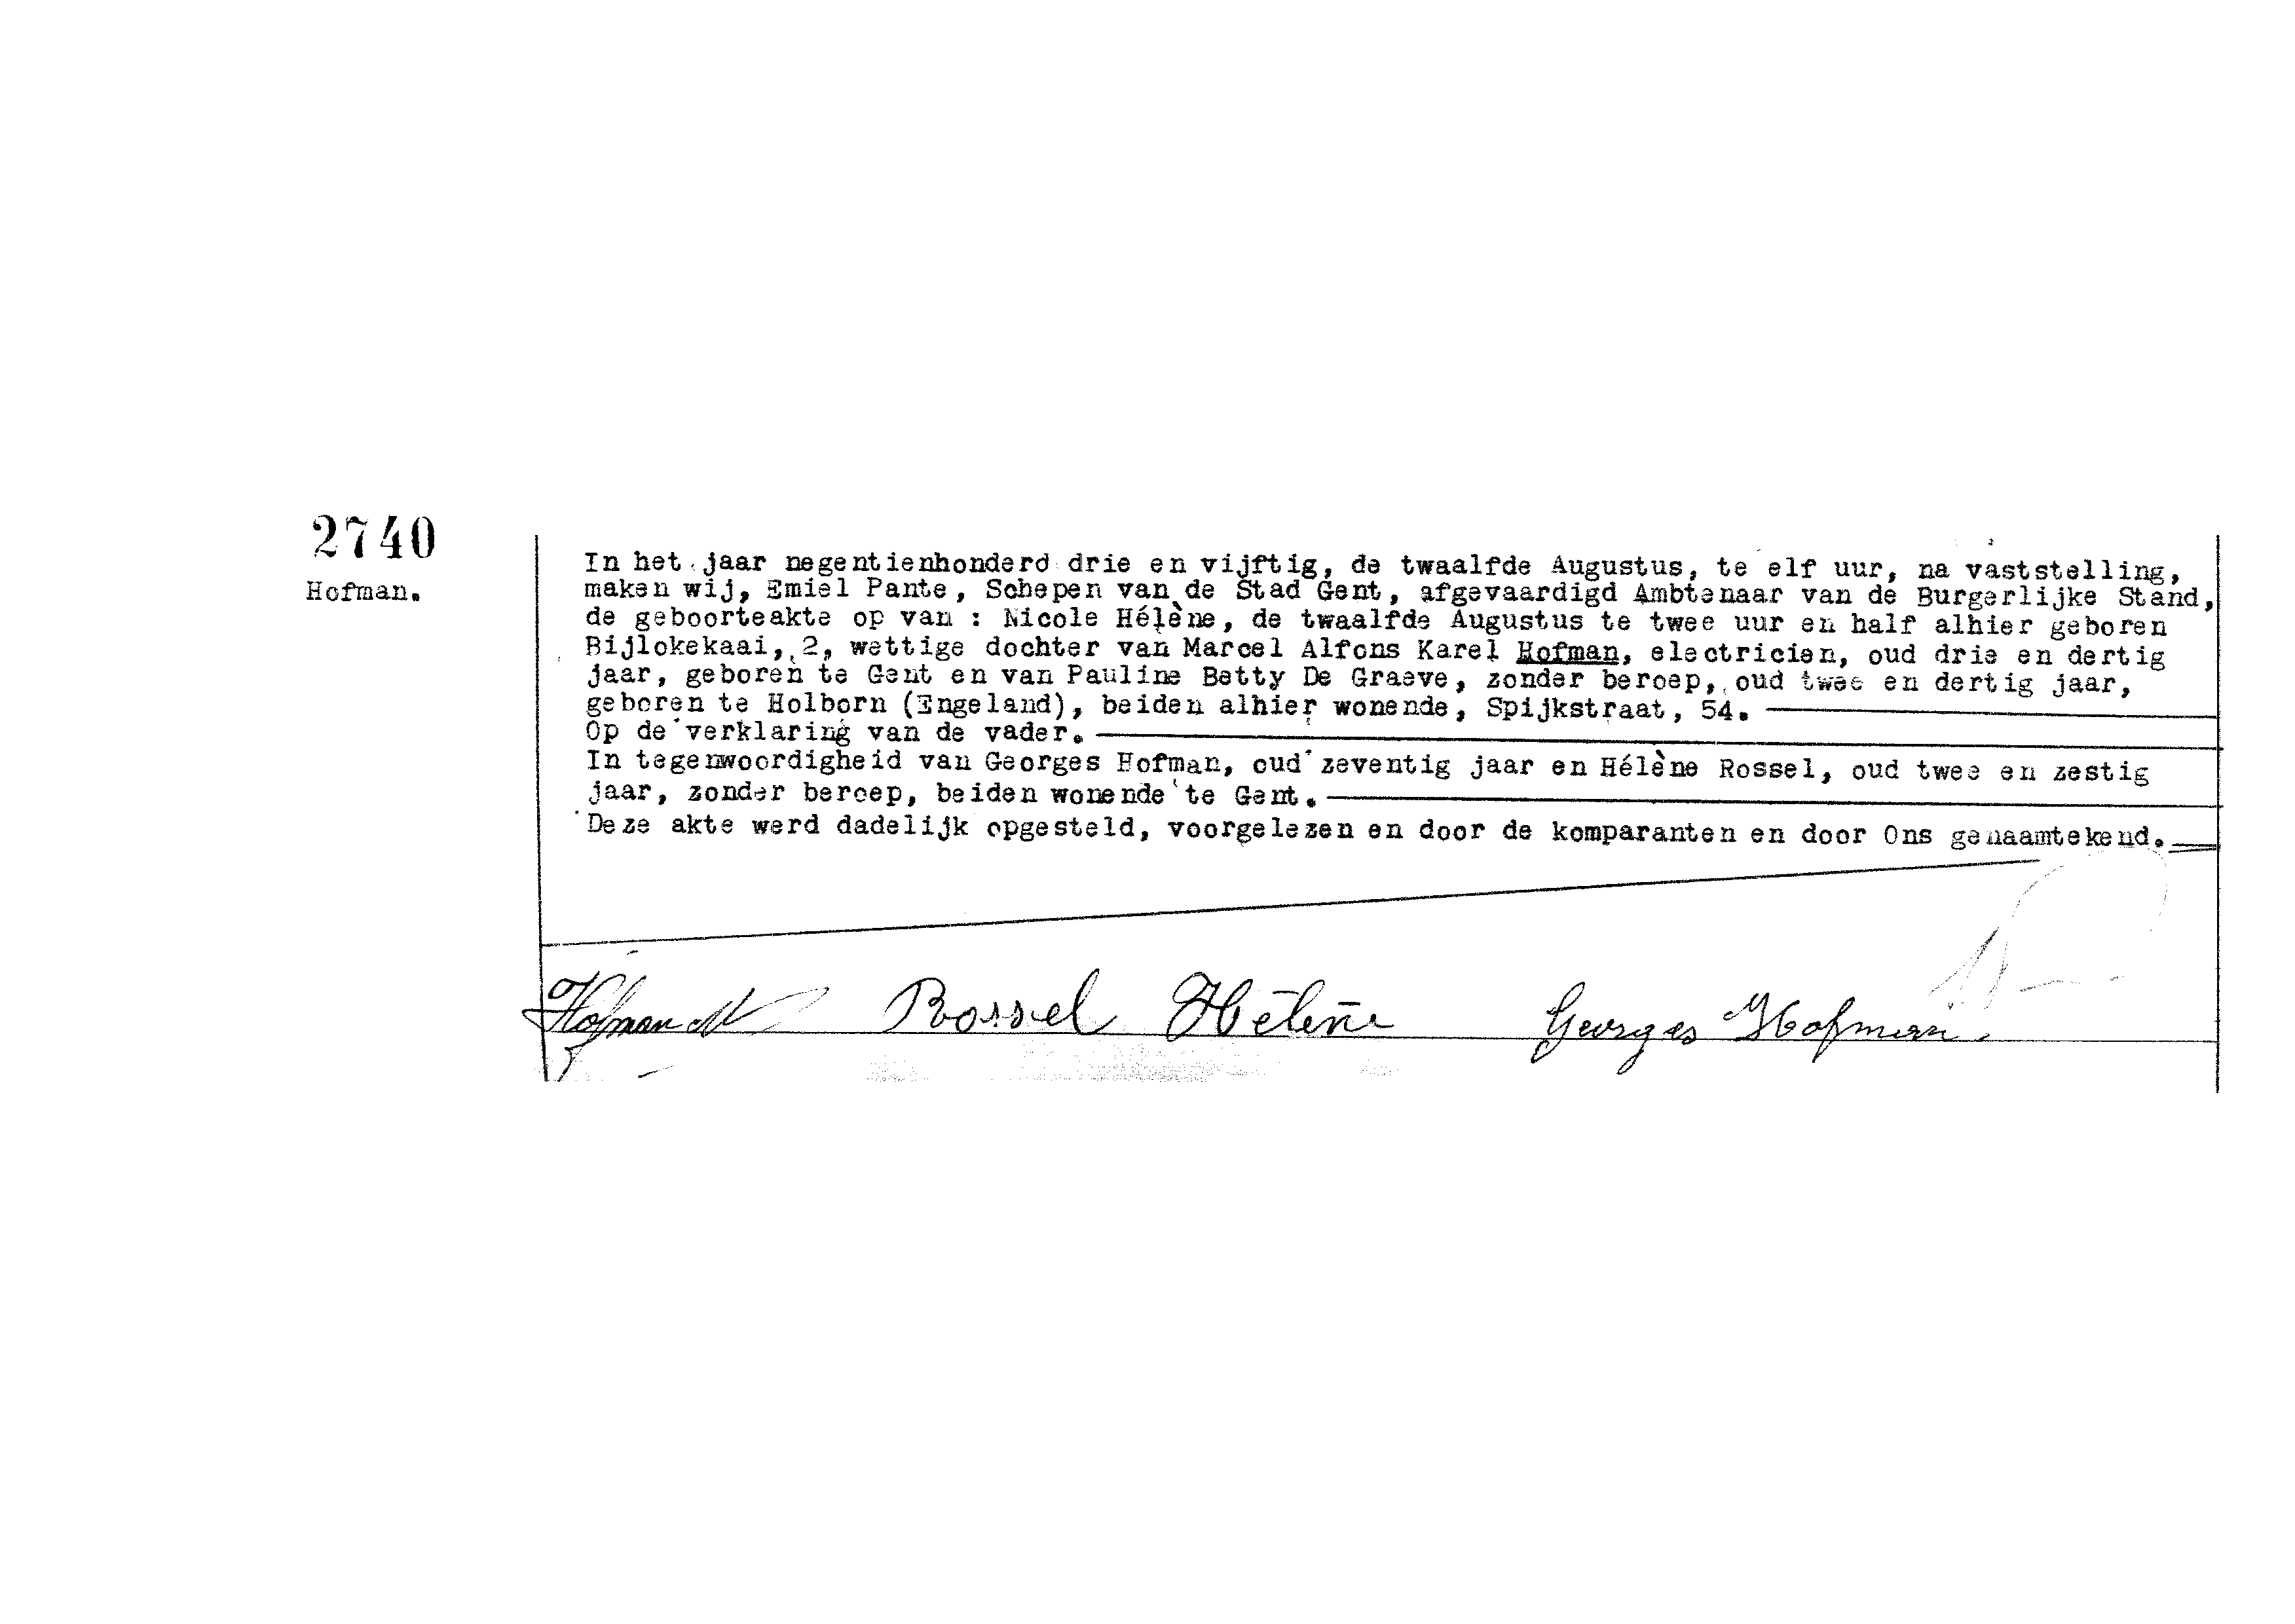 2740
Hofman.
In het jaar negentienhonderd drie en vijftig, de twaalfde Augustus, te elf uur, na vaststelling,
maken wij, Emiel Pante, Schepen van de Stad Gent, afgevaardigd Ambtenaar van de Burgerlijke Stand,
de geboorteakte op van : Nicole Hélène, de twaalfde Augustus te twee uur en half alhier geboren
Bijlokekaai, 2, wettige dochter van Marcel Alfons Karel Hofman, electricien, oud drie en dertig
jaar, geboren te Gent en van Pauline Betty De Graeve, zonder beroep, oud twee en dertig jaar,
geboren te Holborn (Engeland), beiden alhier wonende, Spijkstraat, 54.
Op de verklaring van de vader.
In tegenwoordigheid van Georges Hofman, oud zeventig jaar en Hélène Rossel, oud twee en zestig
jaar, zonder beroep, beiden wonende te Gent.
Deze akte werd dadelijk opgesteld, voorgelezen en door de komparanten en door Ons genaamtekend.
Hofman M Rossel Hélène Georges Hofman